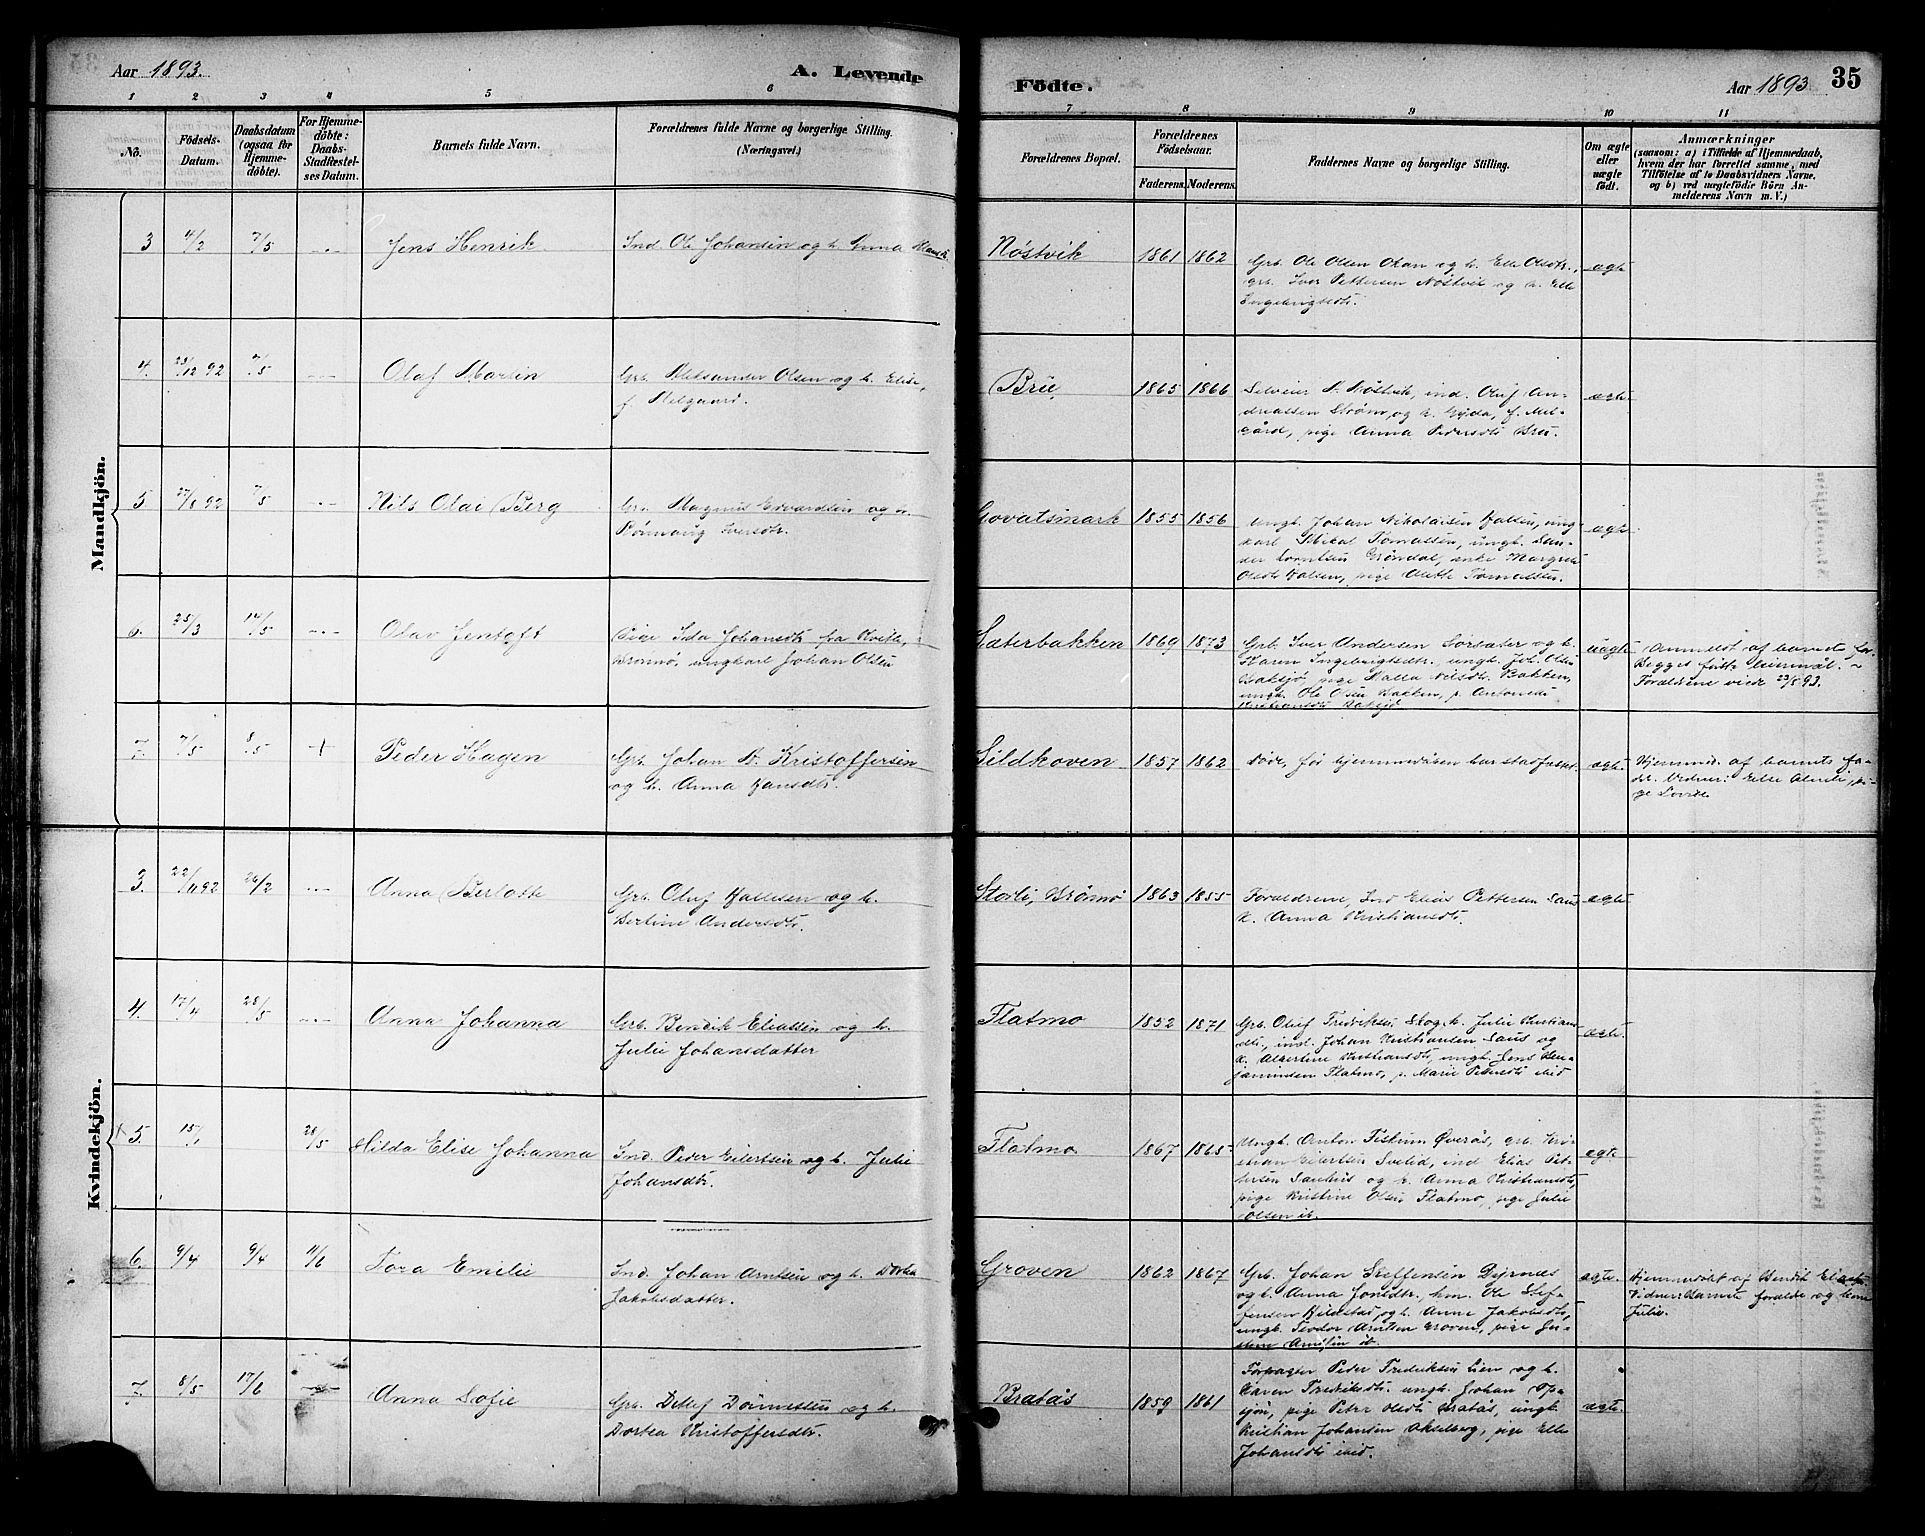 Aar 1893.
A. Levende
Födte.
Aar 1893
35
1 2 3 4 5 6 7 8 9 10 11
No.
Födsels-
Datum.
Daabsdatum
(ogsaa for
Hjemme-
døbte).
For Hjemme-
döbte:
Daabs-
Stadfæstel-
ses Datum.
Barnets fulde Navn.
Forældrenes fulde Navne og borgerlige Stilling.
(Næringsvei.)
Forældrenes Bopæl.
Forældrenes
Födselsaar.
Faderens. Moderens.
Faddernes Navne og borgerlige Stilling.
Om ægte
eller
uægte
født.
Anmærkninger
(saasom: a) i Tilfælde af Hjemmedaab,
hvem der har forrettet samme, med
Tilföielse af to Daabsvidners Navne,
og b) ved uægtefödte Börn An-
melderens Navn m. V.)
Mandkjön.
3 4/2 7/5 Jens Henrik Ind. Ole Johansen og h. Anna
Nöstvik 1861 1862 Grb. Ole Olsen og h. Elle Olsdtr.,
grb. Iver Pettersen Nöstvik og h. Elle
Ingebrigtsdtr.
ægte
4. 23/12 92 7/5 Olaf Martin Grb. Aleksander Olsen og h. Elise,
f. Melgaard.
Brue, 1865 1866 N. Nöstvik, ind. Oluf An-
dreassen Ström, og h. Gyda, f. Mel-
gård, pige Anna Pedersdtr Brue.
ægte
5 27/8 92 7/5 Nils Olai Berg Grb. Magnus Edvardsen og h.
Rönnaug Iversdtr.
Govatsmark 1855 1856 Ungk. Johan Nikolaisen Halsen, ung-
karl Mikal Tomassen, ungk. San-
der Grøndal, enke Margret
Olsdtr Halsen, pige Olette Tomassen.
ægte
6. 25/3 14/5 Olav Jentoft Pige Ida Johansdtr fra
Brönnö, ungkarl Johan Olsen
Sæterbakken 1869 1873 Grb. Iver Andersen Sörsæter og h.
Karen Ingebrigtsdtr. ungk. Joh. Olsen
pige Nilsdtr. Bakken,
ungk. Ole Olsen Bakken, p.
Kristiansdtr
uægte Anmeldt af barnets far.
Begges første leiermål.
Forældrene viede 23/5 93.
7. 7/5 8/5 + Peder Hagen Grb. Johan A. Kristoffersen
og h. Anna Hansdtr.
Sildhoven 1857 1862 Död, før hjemmedåben bar stadfæstet.
ægte. Hjemmed. af barnets fa-
der. Vidner: Elle pi-
ge
Kvindekjön.
3. 22/11 92 26/2 Anna Berlotte Grb. Oluf Hallesen og h.
Bertine Andersdtr.
Storli, Brönnö 1863 1855 Forældrene, Ind Elias Pettersen Saus
h. Anna Kristiansdtr.
ægte
4. 17/4 28/5 Anna Johanna Grb. Bendik Eliassen og h.
Julie Johansdatter
Flatmo 1852 1871 Grb. Oluf Fredriksen, Skog, h. Julie Kristians-
dtr., ind. Johan Kristiansen Saus og
h. Albertine Kristiansdtr, ungk. Jens Ben-
jaminsen Flatmo, p. Marie Petersdtr ibid
ægte.
5. 15/1 28/5 Hilda Elise Johanna Ind. Peder Eilertsen og h. Julie
Johansdtr.
Flatmo. 1867 1865 Ungk. Anton Fiskum Överås, grb. Kri-
stian Eilertsen Svelid, ind Elias Pet-
tersen Saushus og h. Anna Kristiansdtr,
pige Kristine Olsen Flatmo, pige Julie
Olsen ib.
ægte
6. 9/4 9/4 11/6 Tora Emilie Ind. Johan Arntsen og h. Dortea
Jakobsdatter.
Groven 1862 1867 Grb. Johan Steffensen Dyrnæs
og h. Anna Jonsdtr. hm. Ole Stef-
fensen Hildestad, og h. Anne Jakobsdtr,
ungk. Teodor Arntsen Groven, pige
Arntsen ib.
ægte. Hjemmedöbt af Bendik Eliassen
Vidner: Barnets forældre og kone
Julie.
7. 8/5 17/6 Anna Sofie Grb. Detlef og h.
Dortea Kristoffersdtr.
Bratås 1859 1861 Forpagter Peder Fredriksen Lien og h.
Karen Fredriksdtr. ungk. Johan Op-
sjön, pige Peter Olsdtr Bratås, ungk.
Kristian Johansen Akselberg, pige Elle
Johansdtr ibid.
ægte.